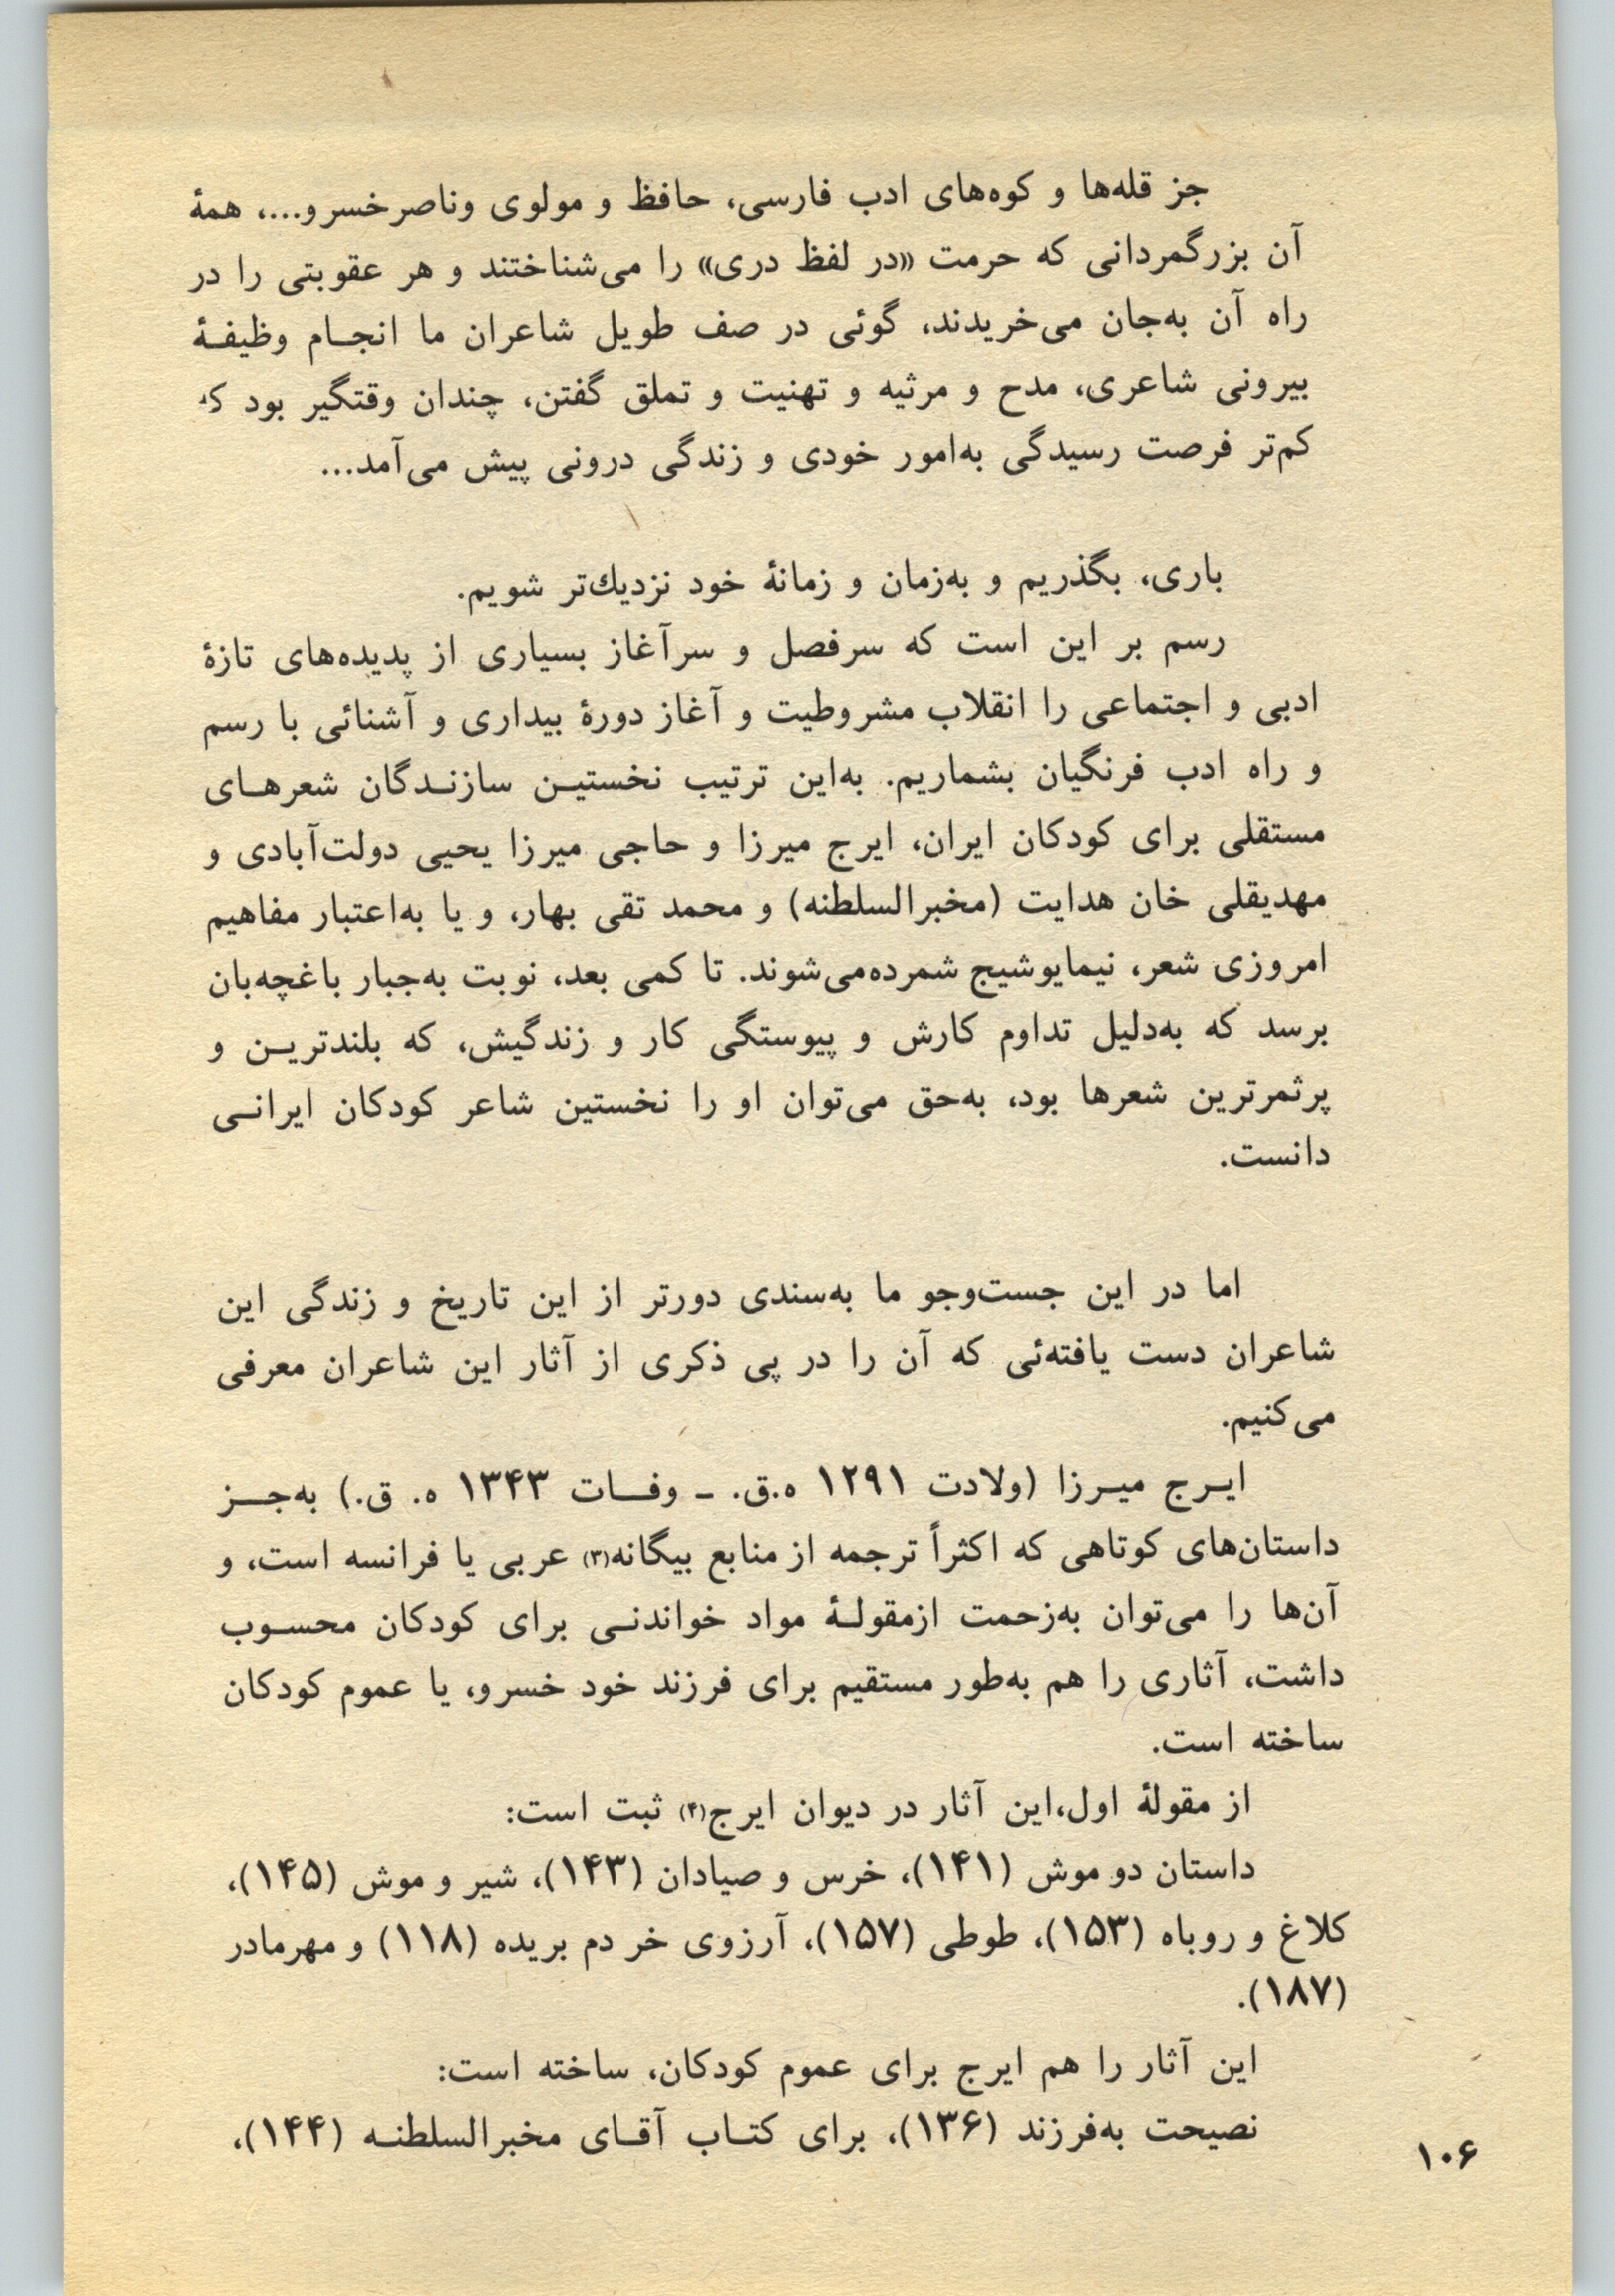 جز قله‌ها و کوه‌های ادب فارسی، حافظ و مولوی وناصرخسرو...، همهٔ
آن بزرگمردانی که حرمت «در لفظ دری» را می‌شناختند و هر عقوبتی را در
راه آن به‌جان می‌خریدند، گوئی در صف طویل شاعران ما انجـام وظیفـهٔ
بیرونی شاعری، مدح و مرثیه و تهنیت و تملق گفتن، چندان وقتگیر بود که
کم‌تر فرصت رسیدگی به‌امور خودی و زندگی درونی پیش می‌آمد...
باری، بگذریم و به‌زمان و زمانهٔ خود نزدیك‌تر شویم.
رسم بر این است که سرفصل و سرآغاز بسیاری از پدیده‌های تازهٔ
ادبی و اجتماعی را انقلاب مشروطیت و آغاز دورهٔ بیداری و آشنائی با رسم
و راه ادب فرنگیان بشماریم. به‌این ترتیب نخستیـن سازنـدگان شعرهـای
مستقلی برای کودکان ایران، ایرج میرزا و حاجی میرزا یحیی دولت‌آبادی و
مهدیقلی خان هدایت (مخبرالسلطنه) و محمد تقی بهار، و یا به‌اعتبار مفاهیم
امروزی شعر، نیمایوشیج شمرده‌می‌شوند. تا کمی بعد، نوبت به‌جبار باغچه‌بان
برسد که به‌دلیل تداوم کارش و پیوستگی کار و زندگیش، که بلندتریـن و
پرثمرترین شعرها بود، به‌حق می‌توان او را نخستین شاعر کودکان ایرانـی
دانست.
اما در این جست‌وجو ما به‌سندی دورتر از این تاریخ و زندگی این
شاعران دست یافته‌ئی که آن را در پی ذکری از آثار این شاعران معرفی
می‌کنیم.
ایـرج میـرزا (ولادت ۱۲۹۱ ه‍.ق. ـ وفــات ۱۳۴۳ ه‍. ق.) به‌جــز
داستان‌های کوتاهی که اکثراً ترجمه از منابع بیگانه(۳) عربی یا فرانسه است، و
آن‌ها را می‌توان به‌زحمت ازمقولـهٔ مواد خواندنـی برای کودکان محسـوب
داشت، آثاری را هم به‌طور مستقیم برای فرزند خود خسرو، یا عموم کودکان
ساخته است.
از مقولهٔ اول،این آثار در دیوان ایرج(۴) ثبت است:
داستان دو موش (۱۴۱)، خرس و صیادان (۱۴۳)، شیر و موش (۱۴۵)،
کلاغ و روباه (۱۵۳)، طوطی (۱۵۷)، آرزوی خر دم بریده (۱۱۸) و مهرمادر
(۱۸۷).
این آثار را هم ایرج برای عموم کودکان، ساخته است:
نصیحت به‌فرزند (۱۳۶)، برای کتـاب آقـای مخبرالسلطنـه (۱۴۴)،
۱۰۶